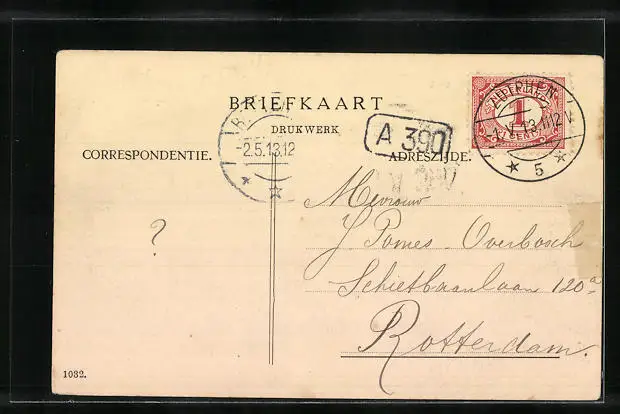 BRIEFKAART
DRUKWERK
CORRESPONDENTIE.
ADRESZIJDE.
-2.5.13.12
A 390
ZUTPHEN
NEDERLAND
1
CENT
11-12 V
5
?
Mevrouw
Pomes-Overbosch
Schietbaanlaan 120a
Rotterdam.
1032.